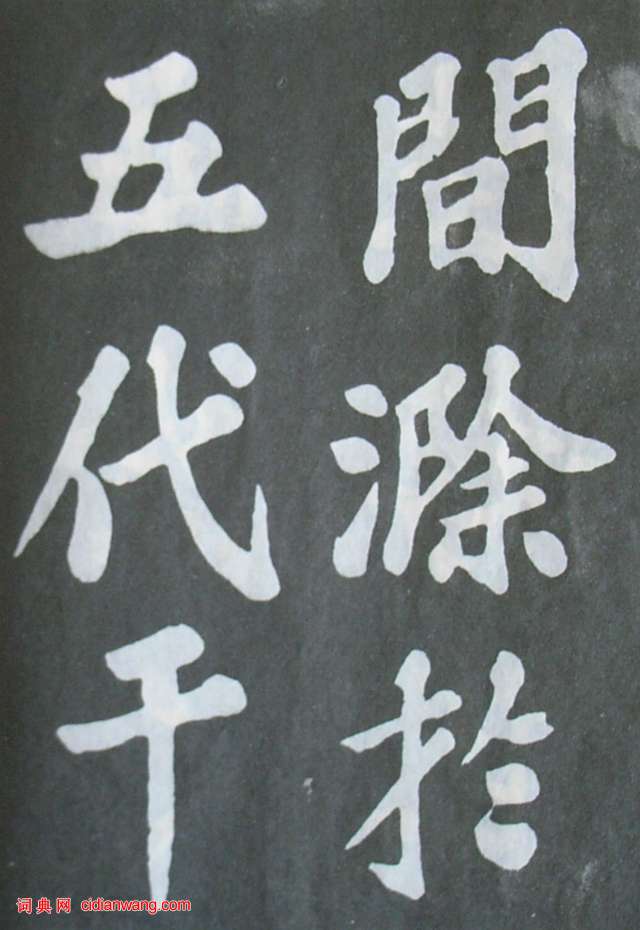 間滁於
五代干
词典网 cidianwang.com